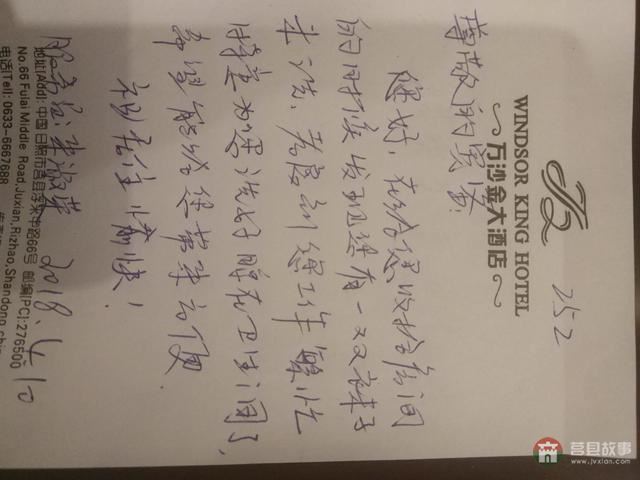 252
WINDSOR KING HOTEL
万沙金大酒店
尊敬的宾客:
您好,在给您收拾房间
的时候发现您有一双袜子
未洗,考虑到您工作繁忙
特意为您洗好晾在卫生间了,
希望能给您带来方便
祝居住愉快!
服务员:
2018.4.10
地址(Add): 中国日照市莒县浮来中路66号 邮编(PC):276500
No.66 Fulai Middle Road,Juxian,Rizhao,Shandong,
电话(Tel): 0633-6667688
莒县故事
www.jvxian.com